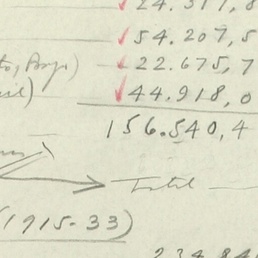 24.317,8
54.207,5
22.675,7
44.918,0
156.540,4
Total
(1915-33)